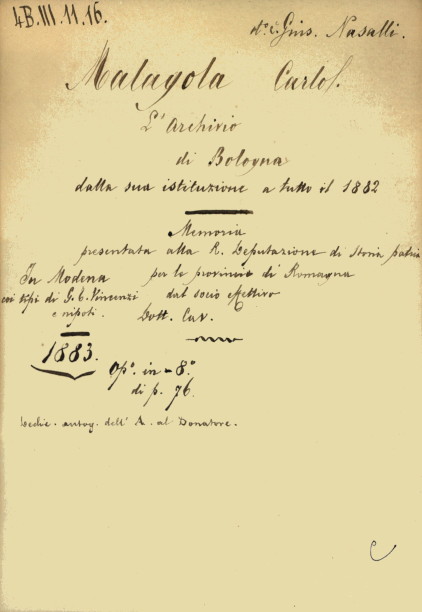 4B.III.11.16.
Gius. Nasalli.
Malagola Carlo.
L'Archivio
di Bologna
dalla sua istituzione a tutto il 1882
Memoria
presentata alla R. Deputazione di Storia patria
per le provincie di Romagna
dal socio effettivo
Dott. Cav. C
In Modena
coi tipi di G. C. Vincenzi
e nipoti.
1883.
Op.º in-8.º
di p. 76.
Dedic. autog. dell'A. al Donatore.
C